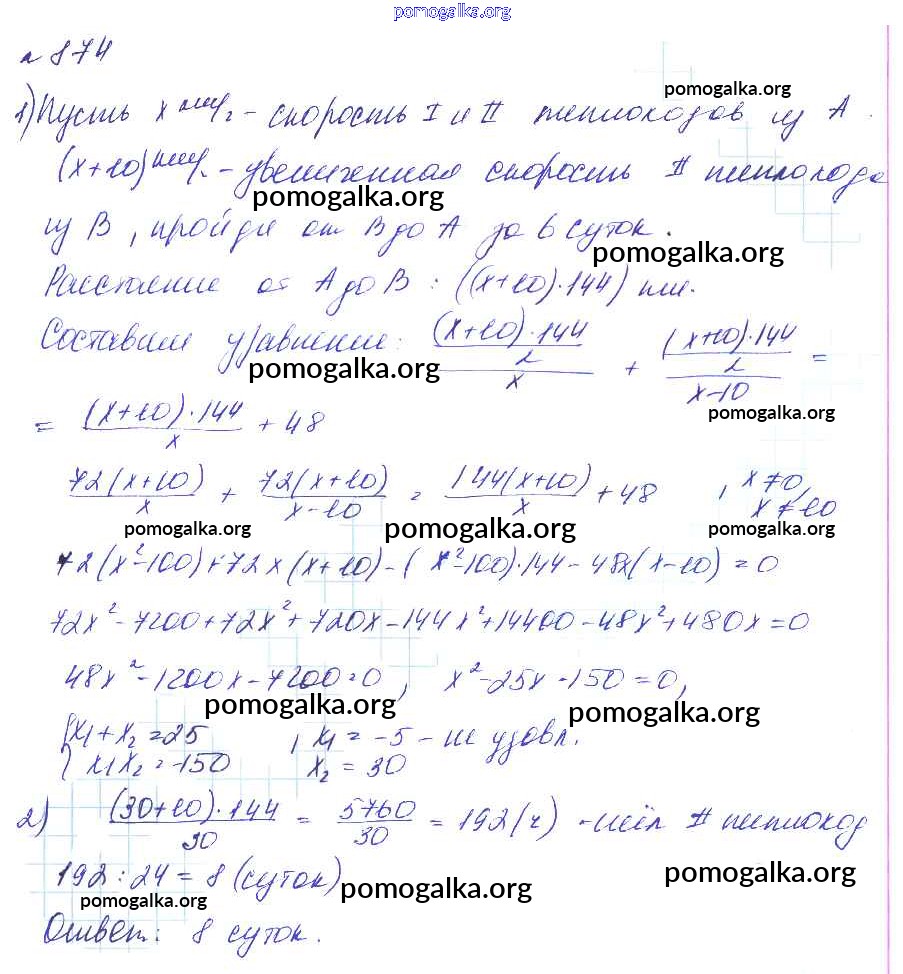 pomogalka.org
№ 874
pomogalka.org
1) Пусть x км/ч - скорость I и II теплоходов из A.
(x+10) км/ч - увеличенная скорость II теплохода
pomogalka.org
из B, пройдя от B до A за 6 суток.
pomogalka.org
Расстояние от A до B: ((x+10)·144) км.
Составим уравнение: ((x+10)·144/2)/x + ((x+10)·144/2)/(x-10) =
pomogalka.org
pomogalka.org
= (x+10)·144/x + 48
72(x+10)/x + 72(x+10)/(x-10) = 144(x+10)/x + 48 , x≠0, x≠10
pomogalka.org pomogalka.org pomogalka.org
72(x²-100)+72x(x+10)-(x²-100)·144-48x(x-10)=0
72x²-7200+72x²+720x-144x²+14400-48x²+480x=0
48x²-1200x-7200=0, x²-25x-150=0,
pomogalka.org pomogalka.org
{x₁+x₂=25 , x₁=-5 - не удовл.
{x₁x₂=-150 x₂=30
2) (30+10)·144/30 = 5760/30 = 192(ч) - шёл II теплоход
192:24=8 (суток)
pomogalka.org pomogalka.org
Ответ: 8 суток.